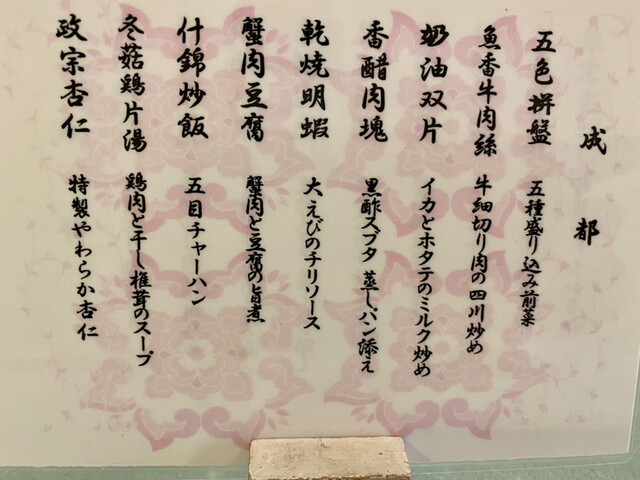 成都
五色拼盤 五種盛り込み前菜
魚香牛肉絲 牛細切り肉の四川炒め
奶油双片 イカとホタテのミルク炒め
香醋肉塊 黒酢スブタ 蒸しパン添え
乾焼明蝦 大えびのチリソース
蟹肉豆腐 蟹肉と豆腐の旨煮
什錦炒飯 五目チャーハン
冬菇鶏片湯 鶏肉と干し椎茸のスープ
政宗杏仁 特製やわらか杏仁